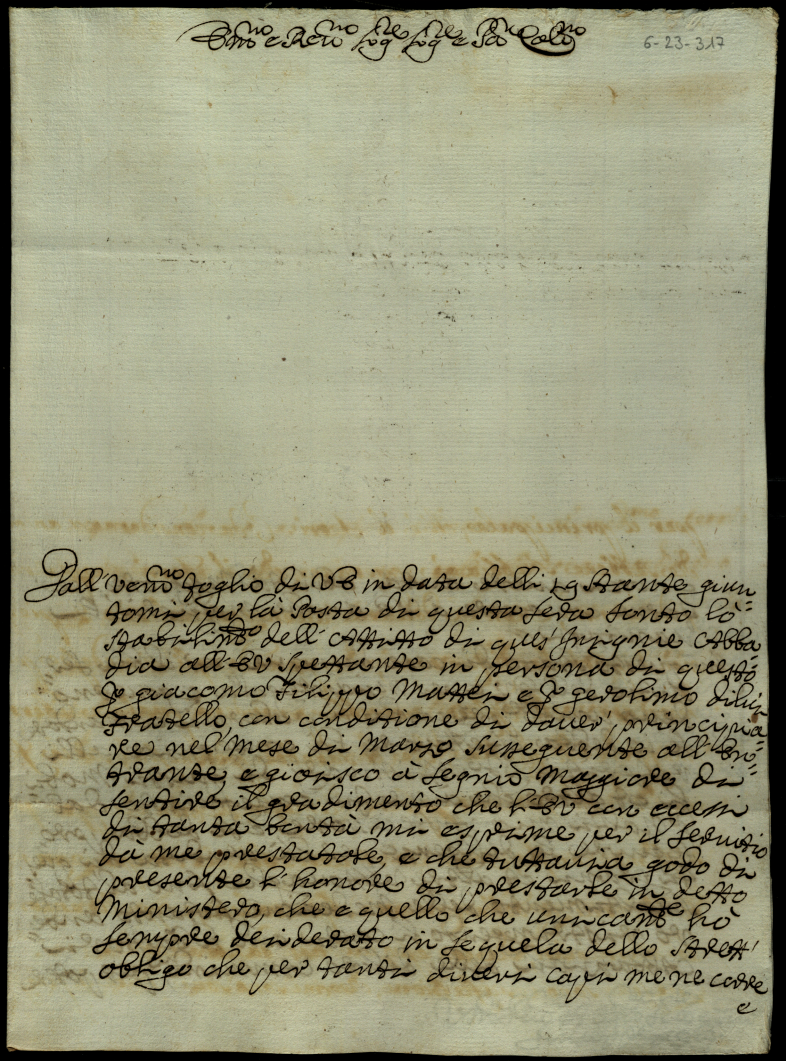 Em.no e Rev.mo Sig.re Sig.re e Pad.ne Col.mo
6-23-317
Dall'ven.mo foglio di VE in data delli 19 stante giun=
tomi per la Posta di questa sera sento lo
stabilim.to dell'Affitto di quest'Insignie Abba
dia all'EV spettante in persona di questo
S.r Giacomo Filippo Mattei e S.r Gerolimo di lui
Fratello, con conditione di dover' principia=
re nel'Mese di Marzo susseguente all'En=
trante, e gioisco à segnio Maggiore di
sentire il gradimento che l'EV con eccessi
di tanta bontà mi esprime per il servitio
dà me prestatole, e che tuttavia godo di
presente l'honore di prestarle in detto
Ministero, che e quello che unicam.te hò
sempre desiderato in sequela dello strett'
obligo che per tanti diversi capi me ne corre
e